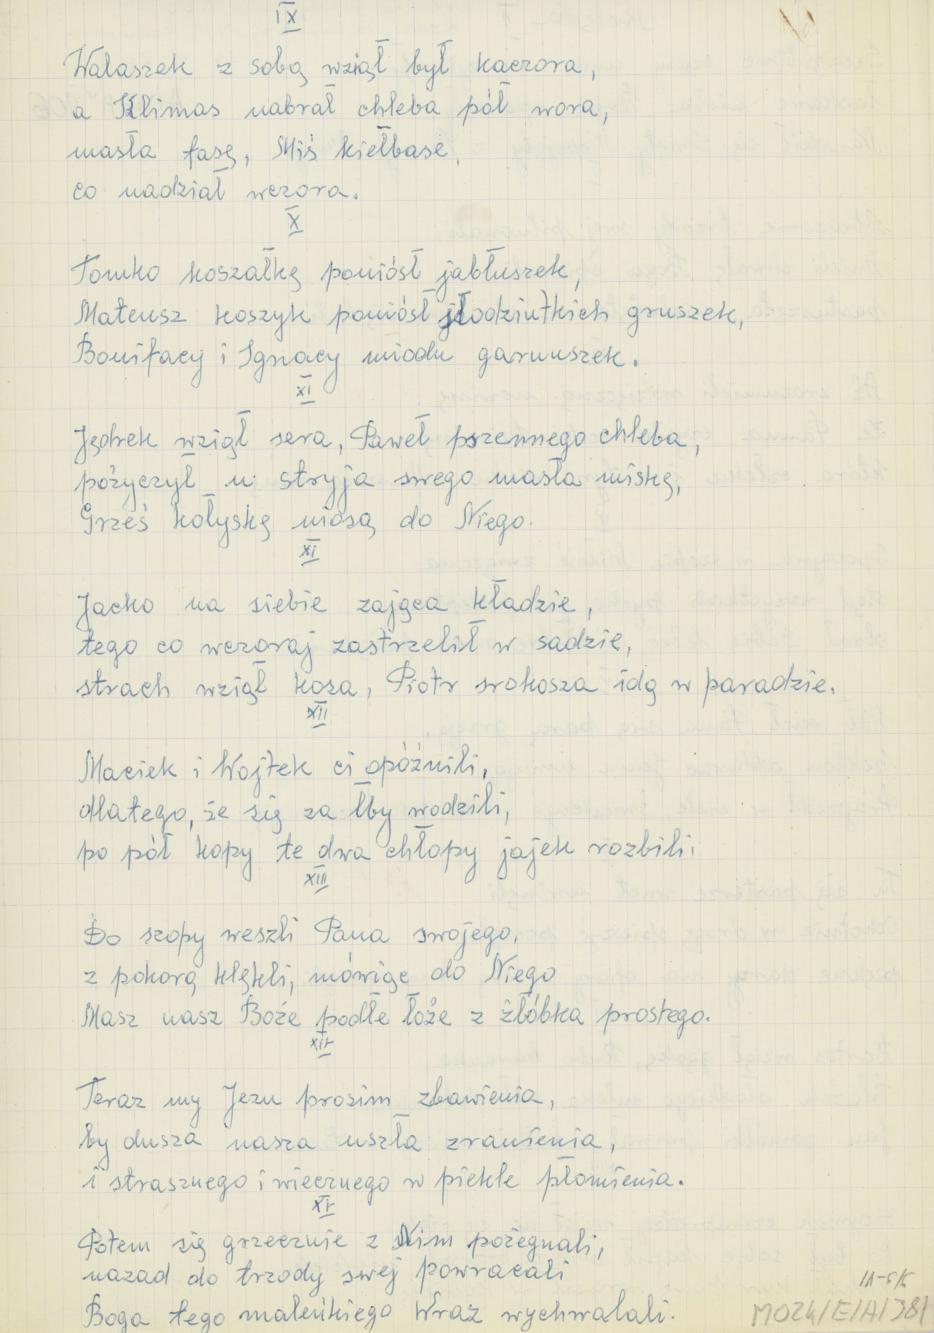 IX
Walaszek z sobą wziął był kaczora,
a Klimas nabrał chleba pół wora,
masła fasę, Miś kiełbasę,
co nadział wczora.
X
Tomko koszałkę poniósł jabłuszek,
Mateusz koszyk poniósł słodziutkich gruszek,
Bonifacy i Ignacy miodu garnuszek.
XI
Jędrek wziął sera, Paweł pszennego chleba,
pożyczył u stryja swego masła miskę,
Grześ kołyskę niosą do Niego.
XI
Jacko na siebie zająca kładzie,
tego co wczoraj zastrzelił w sadzie,
strach wziął kosa, Piotr srokosza idą w paradzie.
XII
Maciek i Wojtek ci opóźnili,
dlatego, że się za łby wodzili,
po pół kopy te dwa chłopy jajek rozbili.
XIII
Do szopy weszli Pana swojego,
z pokorą klękli, mówiąc do Niego
Masz nasz Boże podłe łoże z żłóbka prostego.
XIV
Teraz my Jezu prosim zbawienia,
by dusza nasza uszła zranienia,
i strasznego i wiecznego w piekle płomienia.
XV
Potem się grzecznie z Nim pożegnali,
nazad do trzody swej powracali
Boga tego maleńkiego wraz wychwalali.